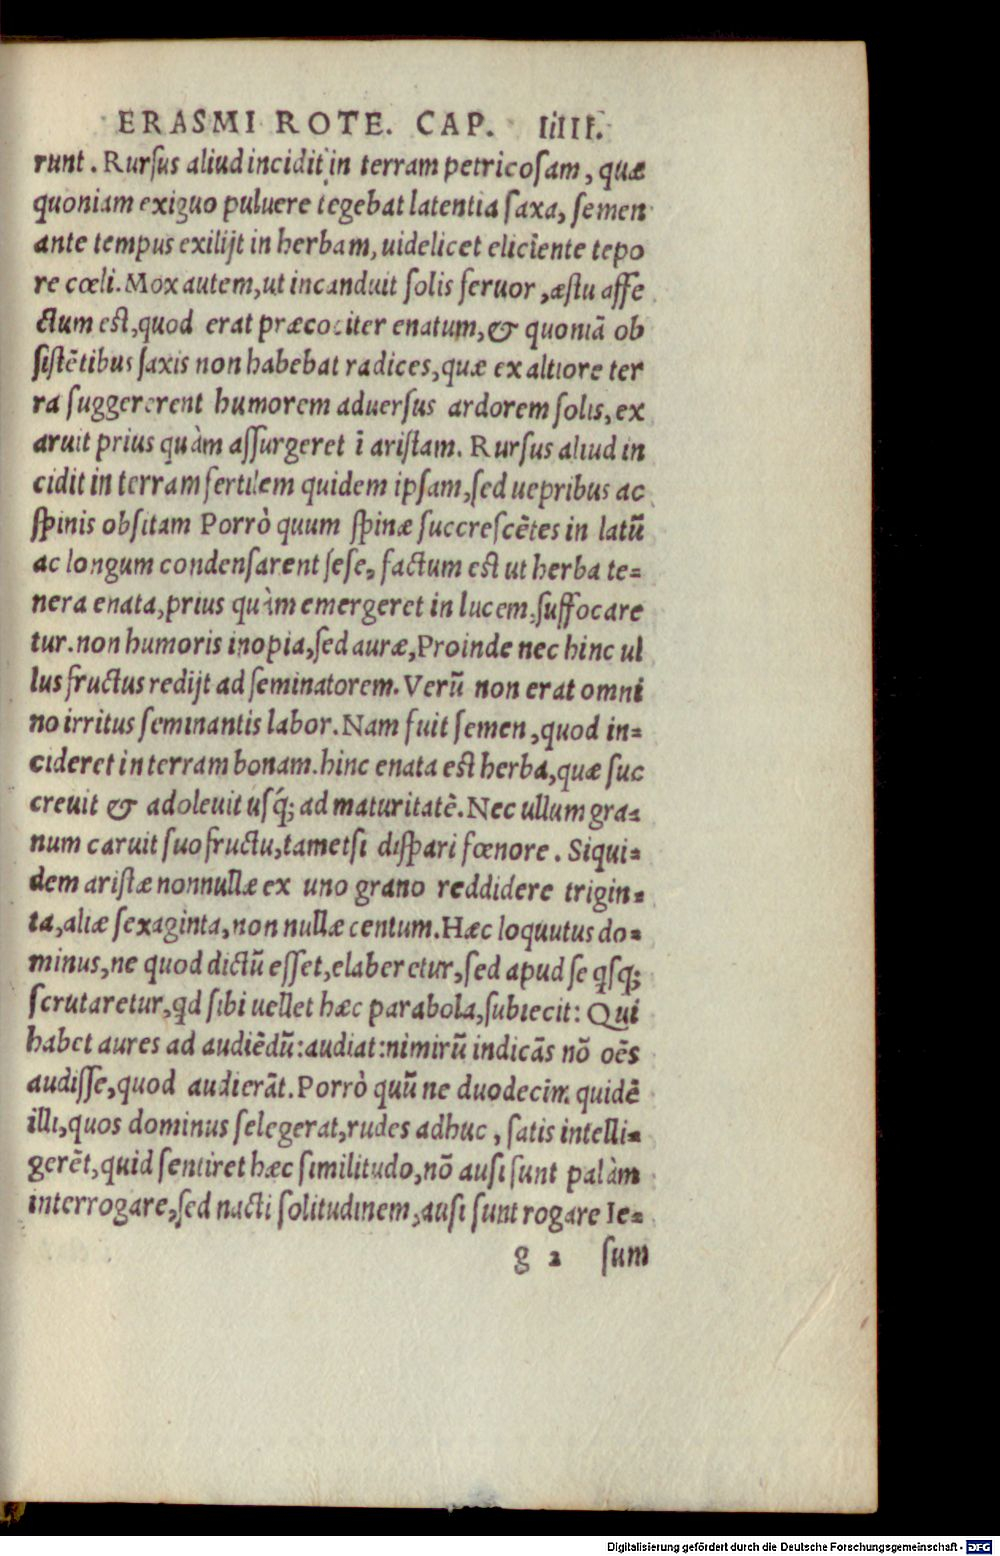 ERASMI ROTE. CAP. IIIII.
runt. Rursus aliud incidit in terram petricosam, quæ
quoniam exiguo puluere tegebat latentia saxa, semen
ante tempus exilijt in herbam, uidelicet eliciente tepo
re cœli. Mox autem, ut incanduit solis feruor, æstu affe
ctum est, quod erat præcociter enatum, & quoniā ob
sistētibus saxis non habebat radices, quæ ex altiore ter
ra suggererent humorem aduersus ardorem solis, ex
aruit prius quàm assurgeret ī aristam. Rursus aliud in
cidit in terram fertilem quidem ipsam, sed uepribus ac
spinis obsitam Porrò quum spinæ succrescētes in latū
ac longum condensarent sese, factum est ut herba te=
nera enata, prius quàm emergeret in lucem, suffocare
tur. non humoris inopia, sed auræ, Proinde nec hinc ul
lus fructus redijt ad seminatorem. Verū non erat omni
no irritus seminantis labor. Nam fuit semen, quod in=
cideret in terram bonam. hinc enata est herba, quæ suc
creuit & adoleuit usq́; ad maturitatē. Nec ullum gra=
num caruit suo fructu, tametsi dispari fœnore. Siqui=
dem aristæ nonnullæ ex uno grano reddidere trigin=
ta, aliæ sexaginta, non nullæ centum. Hæc loquutus do=
minus, ne quod dictū esset, elaberetur, sed apud se qsq;
scrutaretur, qd sibi uellet hæc parabola, subiecit: Qui
habet aures ad audiēdū: audiat: nimirū indicās nō oēs
audisse, quod audierāt. Porrò quū ne duodecim quidē
illi, quos dominus selegerat, rudes adhuc, satis intelli=
gerēt, quid sentiret hæc similitudo, nō ausi sunt palàm
interrogare, sed nacti solitudinem, ausi sunt rogare Ie=
g 2 sum
Digitalisierung gefördert durch die Deutsche Forschungsgemeinschaft - DFG